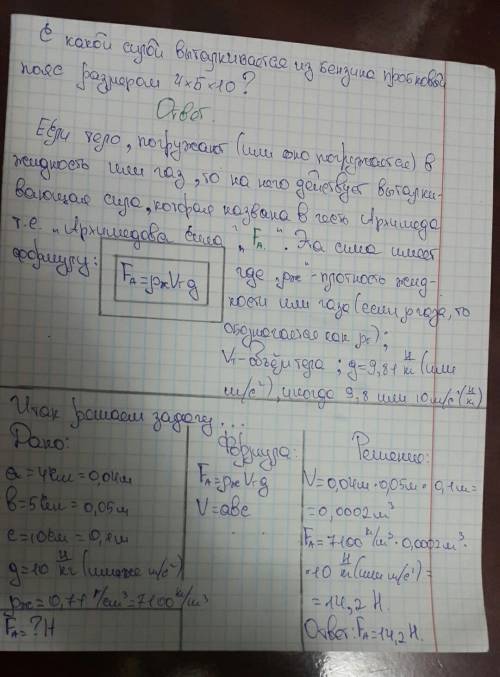 С какой силой выталкивается из бензина пробковый
пояс размером 4×5×10?
Ответ.
Если тело, погружают (или оно погружается) в
жидкость или газ, то на него действует выталки-
вающая сила, которая названа в честь Архимеда
т.е. „Архимедова Сила" „Fₐ". Эта сила имеет
формулу:
Fₐ=ρжVтg
где „ρж"-плотность жид-
кости или газа (если ρ газа, то
обозначается как ρг);
Vт-объём тела; g=9,81 Н/кг (или
м/с²), иногда 9,8 или 10 м/с² (Н/кг)
Итак решаем задачу...
Дано:
a=4см=0,04м
b=5см=0,05м
c=10см=0,1м
g=10 Н/кг (или же м/с²)
ρж=0,71 г/см³=7100 кг/м³
Fₐ=? Н
Формула:
Fₐ=ρжVтg
V=abc
Решение:
V=0,04м·0,05м·0,1м=
=0,0002м³
Fₐ=7100 кг/м³·0,0002м³·
·10 Н/кг (или м/с²)=
=14,2 Н.
Ответ: Fₐ=14,2 Н.